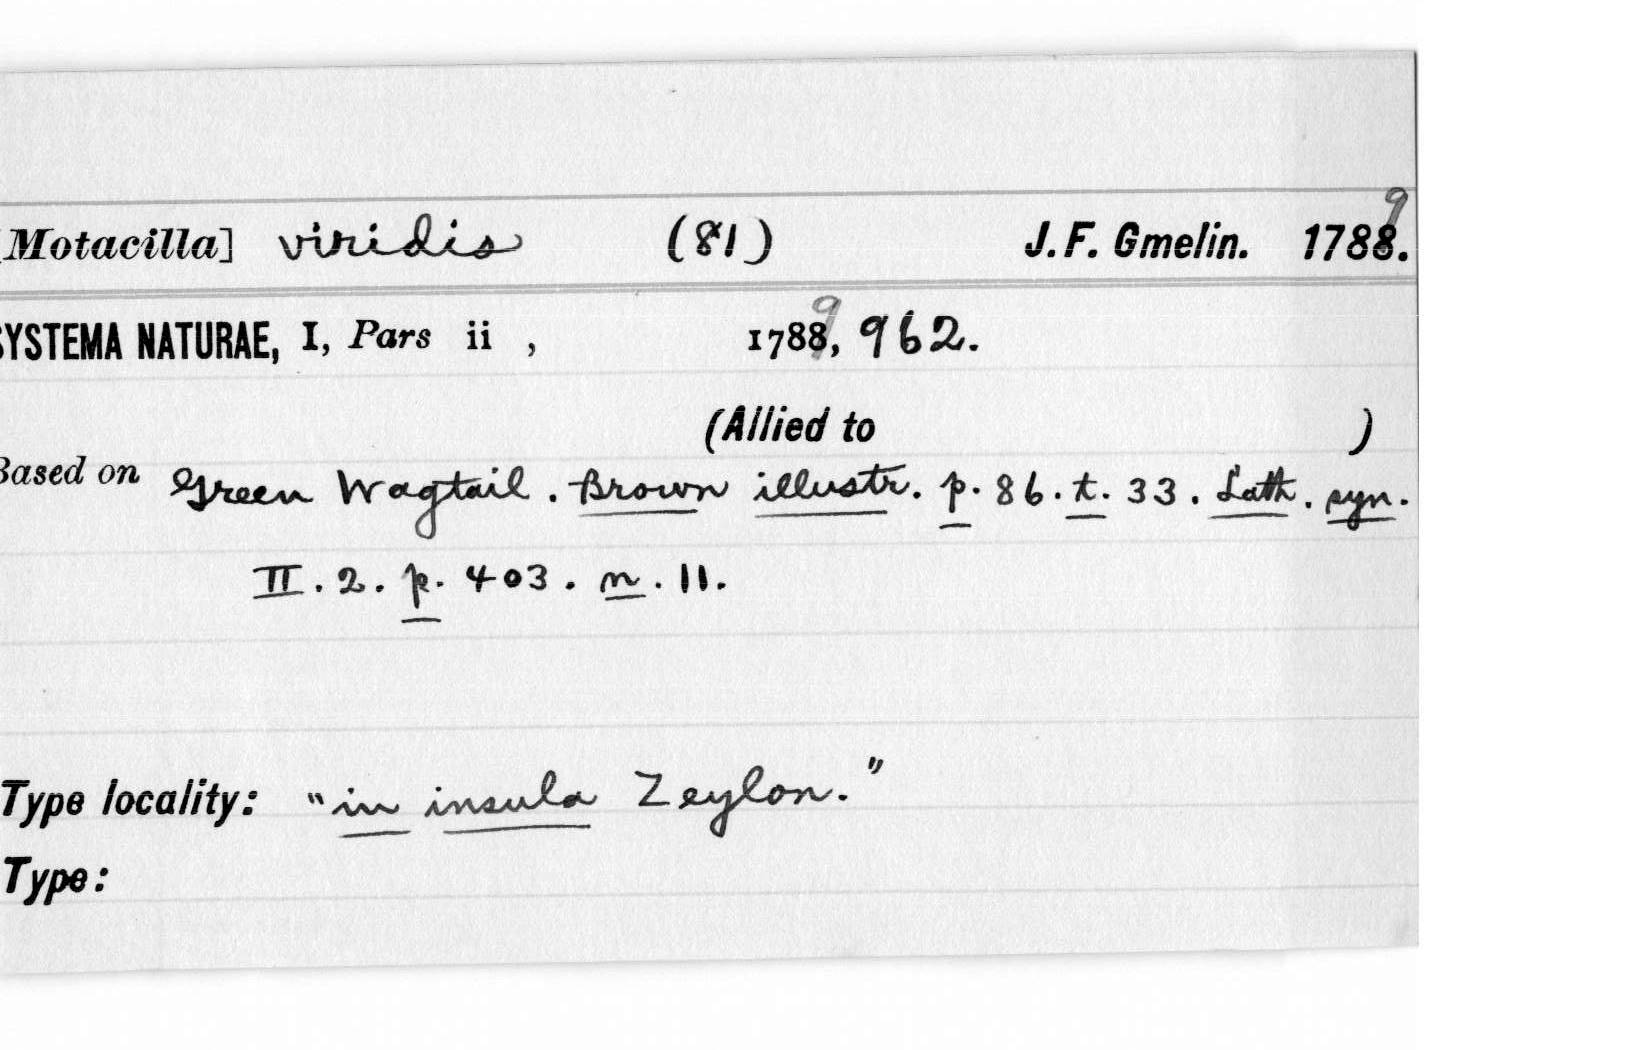 [Motacilla] viridis (81) J. F. Gmelin. 1788. 9
SYSTEMA NATURAE, I, Pars ii , 1788, 9 962.
(Allied to )
Based on Green Wagtail. Brown illustr. p. 86. t. 33. Lath. syn.
II. 2. p. 403. n. 11.
Type locality: "in insula Zeylon."
Type: